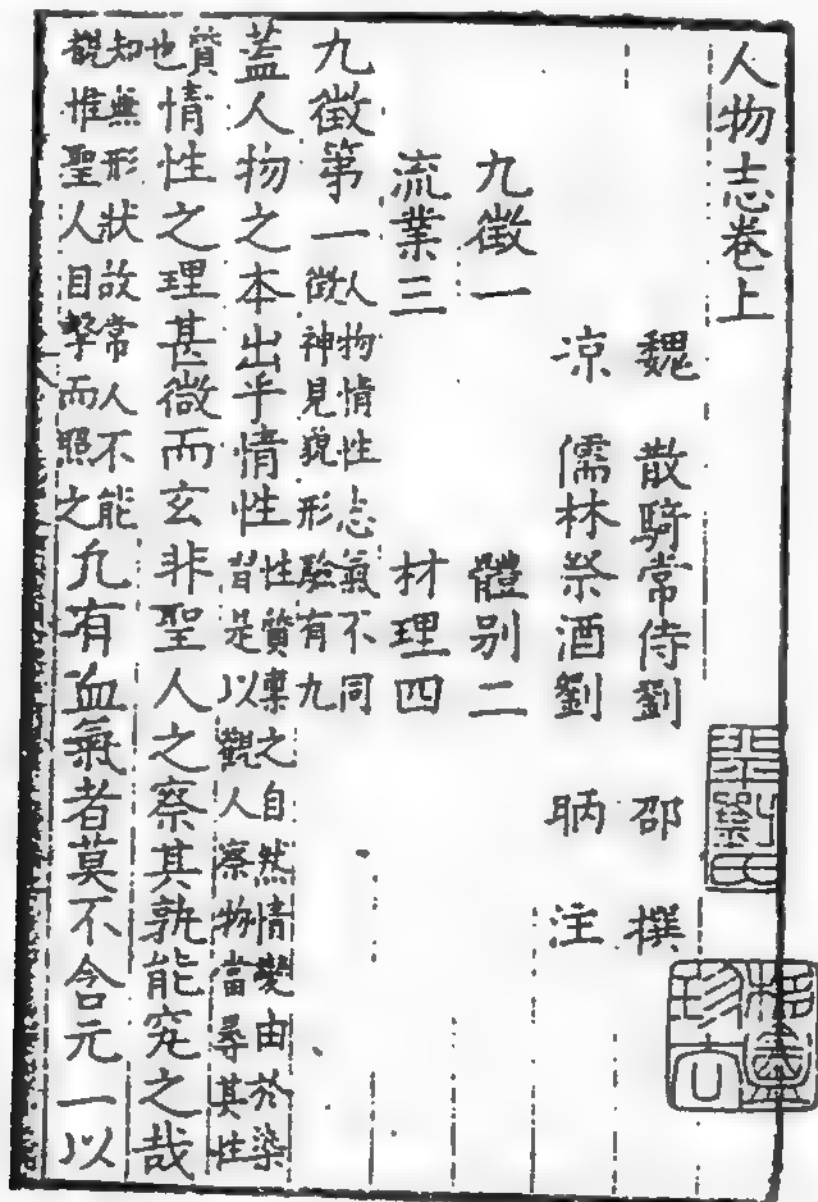 人物志卷上
魏　散騎常侍劉　邵　撰
涼　儒林祭酒劉　昞　注
九徵一　體别二
流業三　材理四
九徵第一人物情性志氣不同
徵神見貌形驗有九
蓋人物之本出乎情性性質稟之自然情變由於染
習是以觀人察物當尋其性
質
也情性之理甚微而玄非聖人之察其孰能究之哉
知無形狀故常人不能
覩惟聖人目擊而照之凢有血氣者莫不含元一以